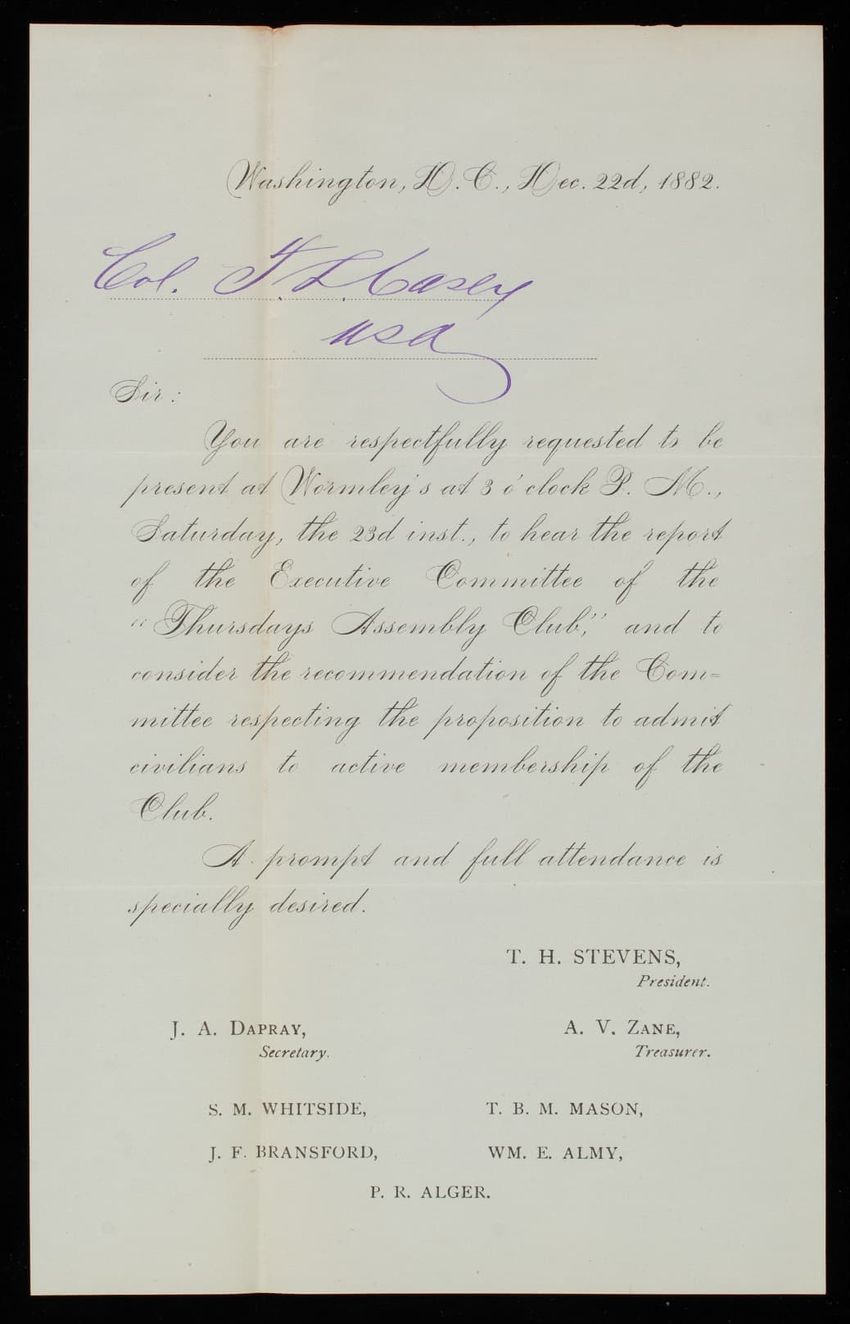 Washington, D. C., Dec. 22d, 1882.
Col. T. L. Casey
USA
Sir:
You are respectfully requested to be
present at Wormley's at 3 o'clock P. M.,
Saturday, the 23d inst., to hear the report
of the Executive Committee of the
"Thursdays Assembly Club," and to
consider the recommendation of the Com=
mittee respecting the proposition to admit
civilians to active membership of the
Club.
A prompt and full attendance is
specially desired.
T. H. STEVENS,
President.
J. A. DAPRAY,
Secretary.
A. V. ZANE,
Treasurer.
S. M. WHITSIDE,
T. B. M. MASON,
J. F. BRANSFORD,
WM. E. ALMY,
P. R. ALGER.